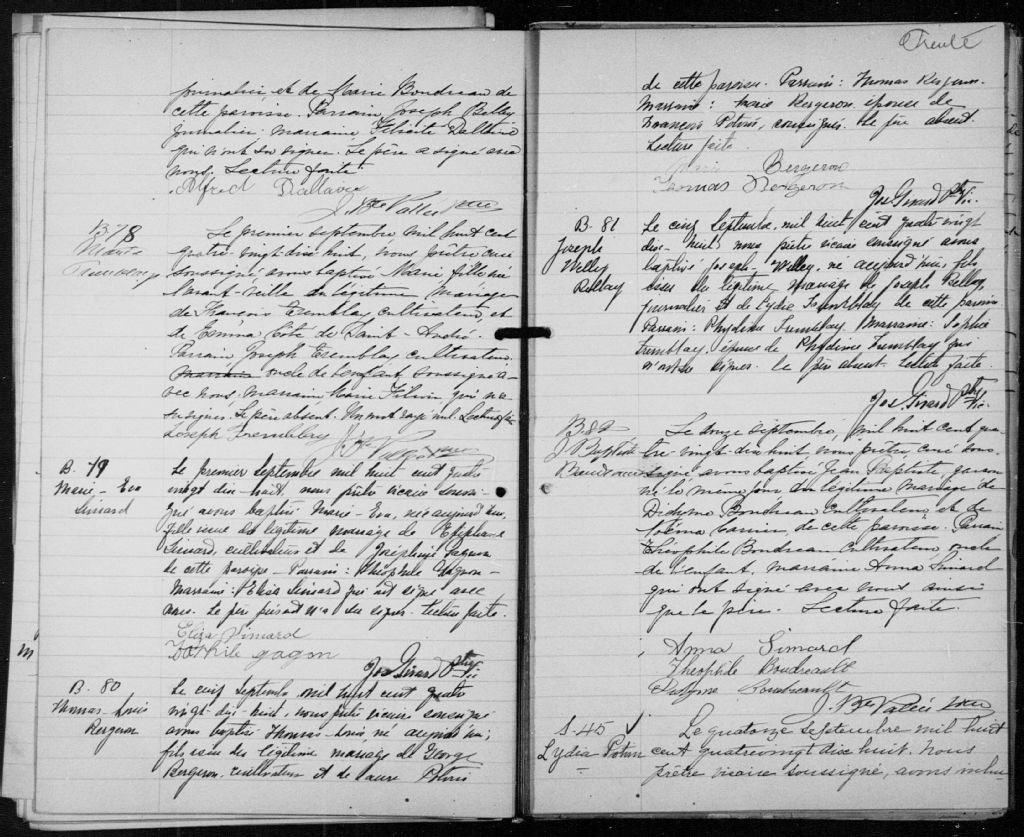 journalier, et de Marie Boudreau de
cette paroisse. Parrain Joseph Bellay
journalier. Marraine Félicité Dallaire
qui n'ont su signer. Le père a signé avec
nous. Lecture faite.
Alfred Dallaire
J. Bte Vallée
B 78
Marie
Le premier septembre mil huit cent
quatre-vingt dix huit, nous prêtre curé
soussigné avons baptisé Marie fille née
l'avant-veille du légitime mariage
de François Tremblay cultivateur et
de Emma Côté de Saint-André.
Parrain Joseph Tremblay cultivateur
oncle de l'enfant soussigné a-
vec nous. Marraine Marie qui n'a
su signer. Le père absent. Un mot rayé nul. Lecture f
Joseph Tremblay
B. 79
Marie-Eva
Simard
Le premier septembre mil huit cent quatre
vingt dix-huit, nous prêtre vicaire soussi-
gné avons baptisé Marie-Eva, née aujourd'hui,
fille issue du légitime mariage de Epiphane
Simard, cultivateur et de Joséphine Gagnon
de cette paroisse - Parrain: Théophile Gagnon -
Marraine: Eliza Simard qui ont signé avec
nous. Le père présent n'a su signer. Lecture faite.
Eliza Simard
gagon
Jos Girard Ptre Vic
B. 80
Thomas-Louis
Bergeron
Le cinq Septembre mil huit cent quatre
vingt-dix-huit, nous prêtre vicaire soussigné
avons baptisé Thomas-Louis né aujourd'hui;
fils issu du légitime mariage de George
Bergeron, cultivateur et de Potvin
Trente
de cette paroisse. Parrain: Thomas Bergeron.
Marraine: Marie Bergeron, épouse de
François Potvin, soussignés. Le père absent.
Lecture faite
Marie Bergeron
Thomas Bergeron
Jos Girard Ptre Vic.
B. 81
Joseph
Willey
Bellay
Le cinq Septembre, mil huit cent quatre vingt
dix-huit nous prêtre vicaire soussigné avons
baptisé Joseph-Willey, né aujourd'hui, fils
issu du légitime mariage de Joseph Bellay,
journalier et de Lydie Tremblay de cette paroisse
Parrain: Phydime Tremblay. Marraine: Sophie
Tremblay, épouse de Phydime Tremblay qui
n'ont su signer. Le père absent. Lecture faite.
Jos Girard Ptre Vic.
B 82
J Baptiste
Boudreau
Le douze septembre, mil huit cent qua-
tre-vingt-dix-huit, nous, prêtre, curé sous-
signé, avons baptisé Jean Baptiste garçon
né le même jour du légitime mariage de
Didyme Boudreau cultivateur et de
de cette paroisse. Parrain
Théophile Boudreau cultivateur oncle
de l'enfant, marraine Anna Simard
qui ont signé avec nous ainsi
que le père. Lecture faite.
Anna Simard
Théophile Boudreault
Didyme Boudreault
J. Bte Vallée
S. 45 ✓
Lydia Potvin
Le quatorze septembre mil huit
cent quatrevingt dix huit, nous
prêtre vicaire soussigné, avons inhu-